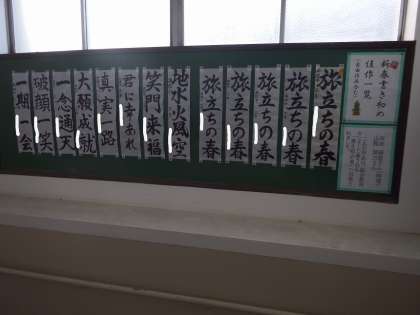 新春書き初め
佳作一覧
旅立ちの春
旅立ちの春
旅立ちの春
旅立ちの春
旅立ちの春
地水火風空
笑門来福
君に幸あれ
真実一路
大願成就
一念通天
破顔一笑
一期一会